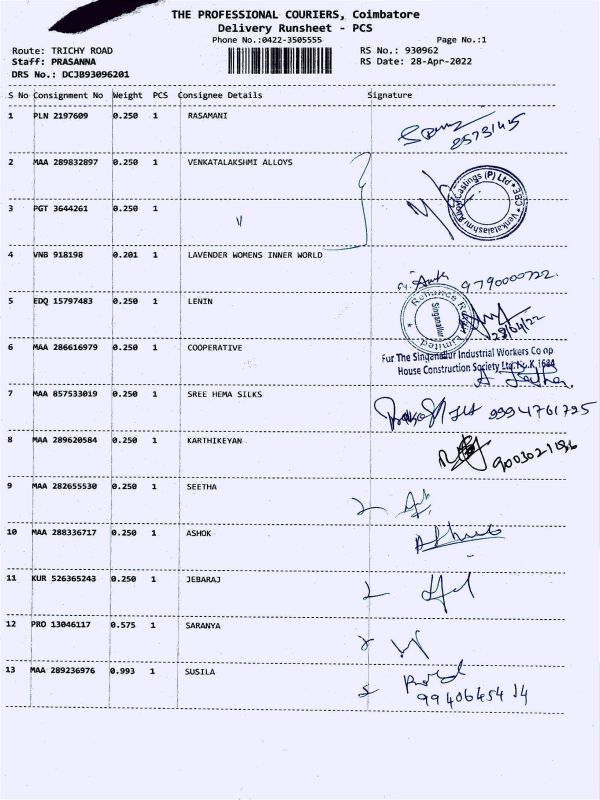 THE PROFESSIONAL COURIERS, Coimbatore
Delivery Runsheet - PCS
Phone No.:0422-3505555
Page No.:1
Route: TRICHY ROAD
RS No.: 930962
Staff: PRASANNA
RS Date: 28-Apr-2022
DRS No.: DCJB93096201
S No Consignment No Weight PCS Consignee Details Signature
1 PLN 2197609 0.250 1 RASAMANI
2 MAA 289832897 0.250 1 VENKATALAKSHMI ALLOYS
Venkatalakshmi Alloy Castings (P) Ltd * CBE *
3 PGT 3644261 0.250 1 "
4 VNB 918198 0.201 1 LAVENDER WOMENS INNER WORLD
9790000722.
5 EDQ 15797483 0.250 1 LENIN
Singanallur
Limited
28/04/22
6 MAA 286616979 0.250 1 COOPERATIVE
For The Singanallur Industrial Workers Co op
House Construction Society Ltd. No. K 1684
7 MAA 857533019 0.250 1 SREE HEMA SILKS
9994761795
8 MAA 289620584 0.250 1 KARTHIKEYAN
9 MAA 282655530 0.250 1 SEETHA
10 MAA 288336717 0.250 1 ASHOK
11 KUR 526365243 0.250 1 JEBARAJ
12 PRO 13046117 0.575 1 SARANYA
13 MAA 289236976 0.993 1 SUSILA